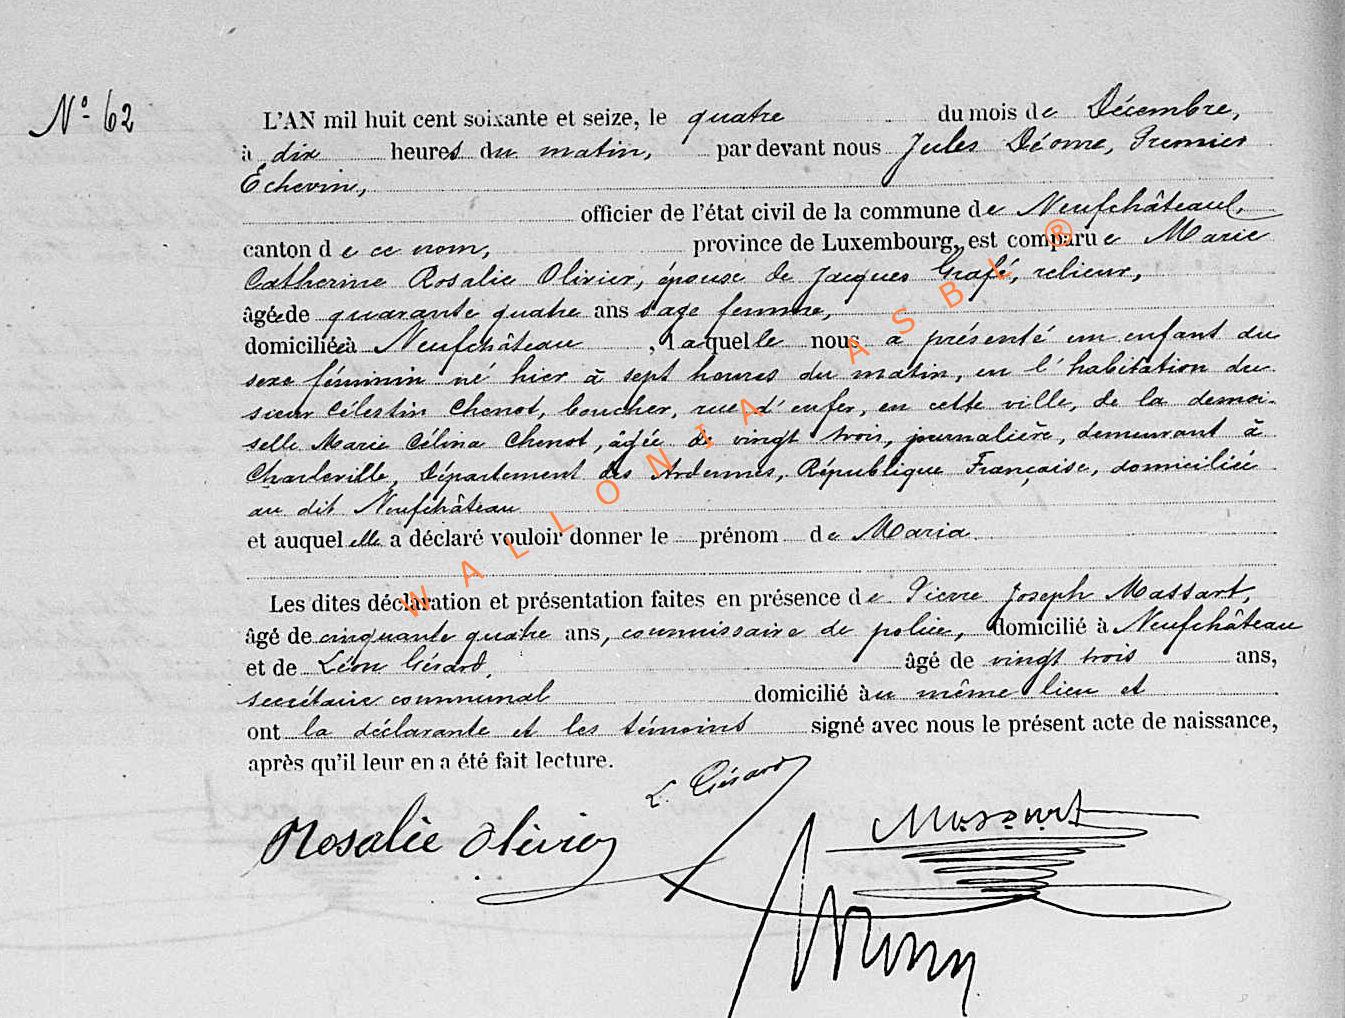 N° 62
L'AN mil huit cent soixante et seize, le quatre du mois de Décembre,
à dix heures du matin, par devant nous Jules Déome, Premier
Echevin,
officier de l'état civil de la commune de Neufchâteau,
canton de ce nom, province de Luxembourg, est comparue Marie
Catherine Rosalie Olivier, épouse de Jacques Grafé, relieur,
âgée de quarante quatre ans sage femme,
domiciliée à Neufchâteau, laquelle nous a présenté un enfant du
sexe féminin né hier à sept heures du matin, en l'habitation du
sieur Célestin Chenot, boucher, rue d'enfer, en cette ville, de la demoi-
selle Marie Célina Chenot, âgée de vingt trois, journalière, demeurant à
Charleville, Département des Ardennes, République Française, domiciliée
au dit Neufchâteau
et auquel elle a déclaré vouloir donner le prénom de Maria.
Les dites déclaration et présentation faites en présence de Pierre Joseph Massart,
âgé de cinquante quatre ans, commissaire de police, domicilié à Neufchâteau
et de Léon Gérard, âgé de vingt trois ans,
secrétaire communal domicilié au même lieu et
ont la déclarante et les témoins signé avec nous le présent acte de naissance,
après qu'il leur en a été fait lecture.
L. Gérard
Rosalie Olivier
Massart
WALLONIA ASBL ®